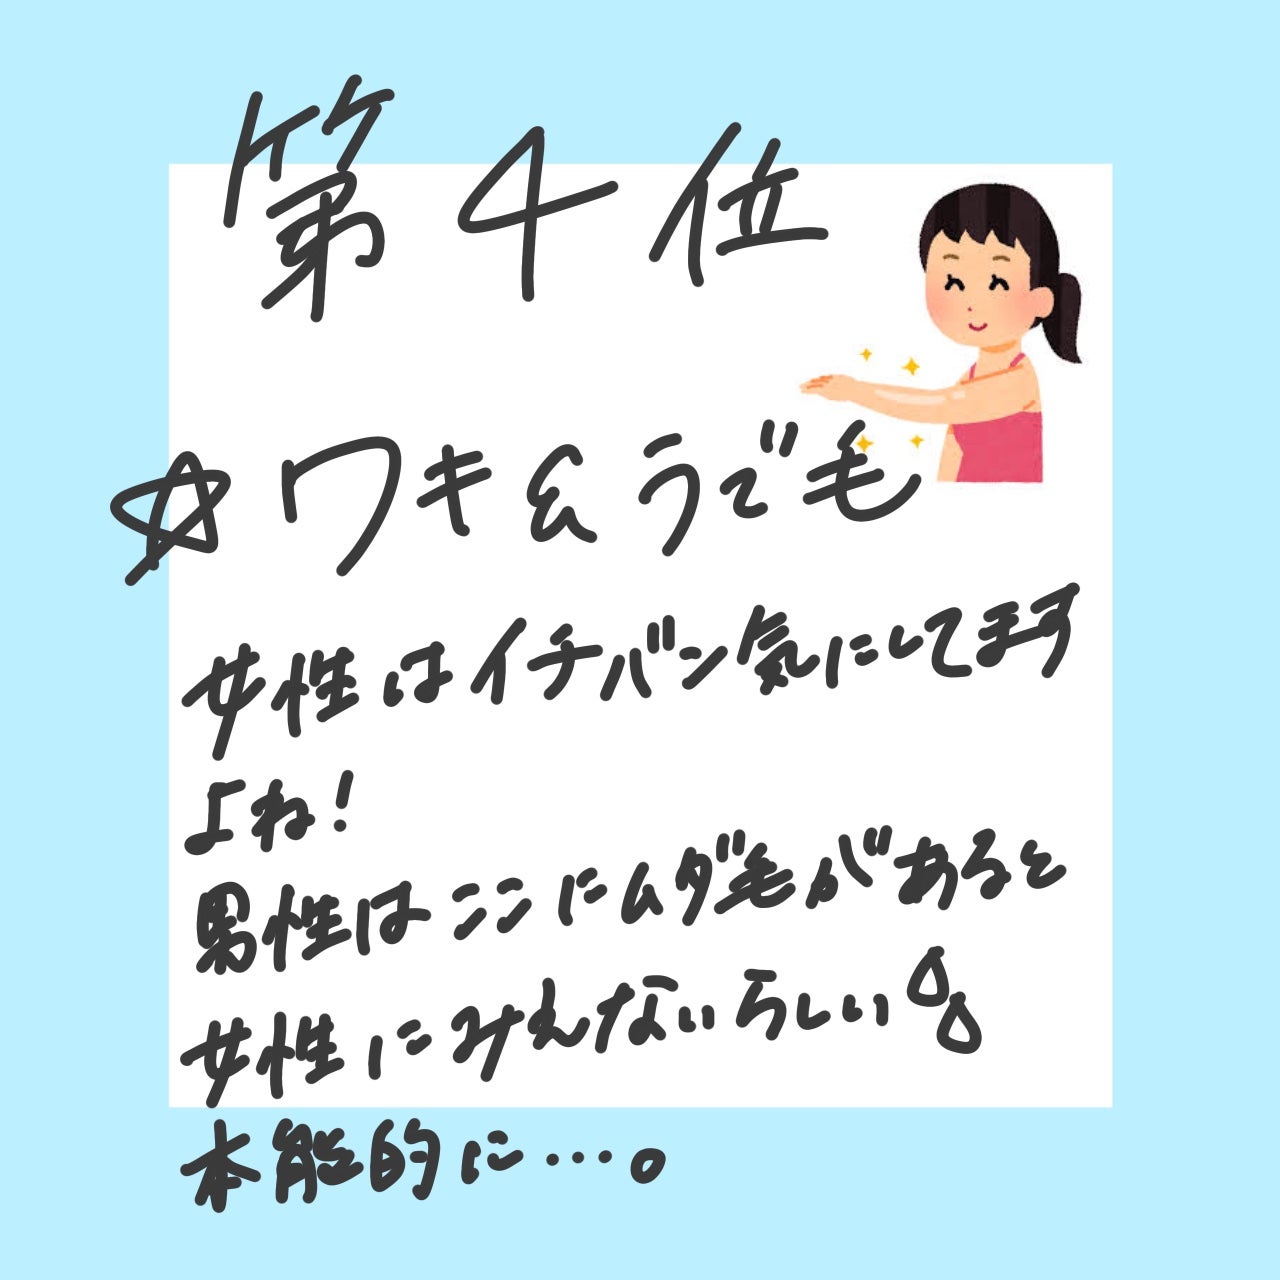 第4位
☆ワキ&うで毛
女性はイチバン気にしてます
よね!
男性はここにムダ毛があると
女性にみえないらしい
本能的に…。